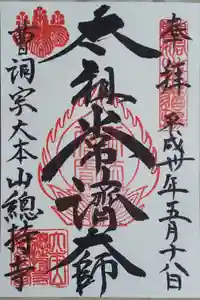 奉拝
平成卅年五月十八日
太祖常濟大師
曹洞宗大本山總持寺